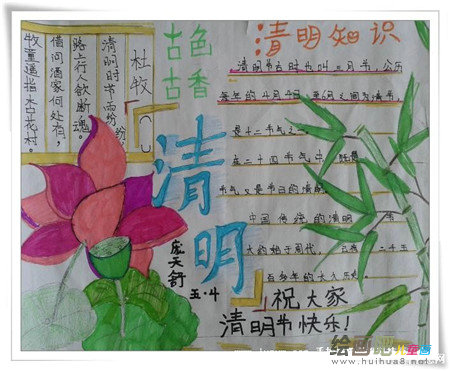 杜牧
清明时节雨纷
路上行人欲断魂。
借问酒家何处有,
牧童遥指杏花村。
古色
古香
清明
庞天舒
五·4
清明知识
清明节古时也叫三月节,公乐
每年的4月4日至6日之间为清节
是十二节气之一。
在二十四节气中
节气又是节日的清明。
中国传统的清明
大约始于周代,
百多年的
祝大家
清明节快乐!
绘画吧儿童画
http://www.huihua8.net